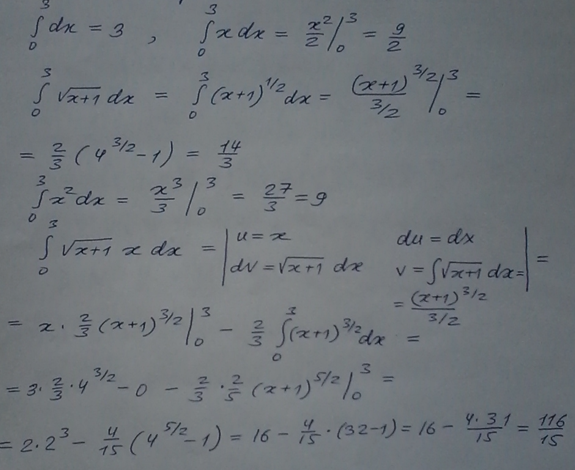 ∫₀³ dx = 3 , ∫₀³ x dx = x²/2 |₀³ = 9/2
∫₀³ √(x+1) dx = ∫₀³ (x+1)^(1/2) dx = (x+1)^(3/2)/(3/2) |₀³ =
= 2/3 (4^(3/2) - 1) = 14/3
∫₀³ x² dx = x³/3 |₀³ = 27/3 = 9
∫₀³ √(x+1) x dx = | u = x du = dx
dv = √(x+1) dx v = ∫√(x+1) dx = | =
= (x+1)^(3/2)/(3/2)
= x · 2/3 (x+1)^(3/2) |₀³ - 2/3 ∫₀³ (x+1)^(3/2) dx =
= 3 · 2/3 · 4^(3/2) - 0 - 2/3 · 2/5 (x+1)^(5/2) |₀³ =
= 2 · 2³ - 4/15 (4^(5/2) - 1) = 16 - 4/15 · (32 - 1) = 16 - 4·31/15 = 116/15